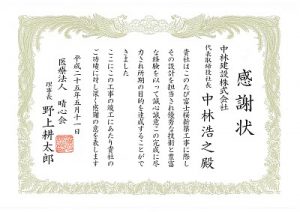 感謝状
中林建設株式会社
代表取締役社長
中林浩之殿
貴社はこのたび富士桜新築工事に際し
その設計を担当され優秀な技術と豊富
な経験を以って誠心誠意この完成に尽
力され所期の目的を達成することがで
きました
ここにこの工事の竣工にあたり貴社の
ご功績に対し深く感謝の意を表します
平成二十五年五月十一日
医療法人 晴心会
理事長 野上耕太郎